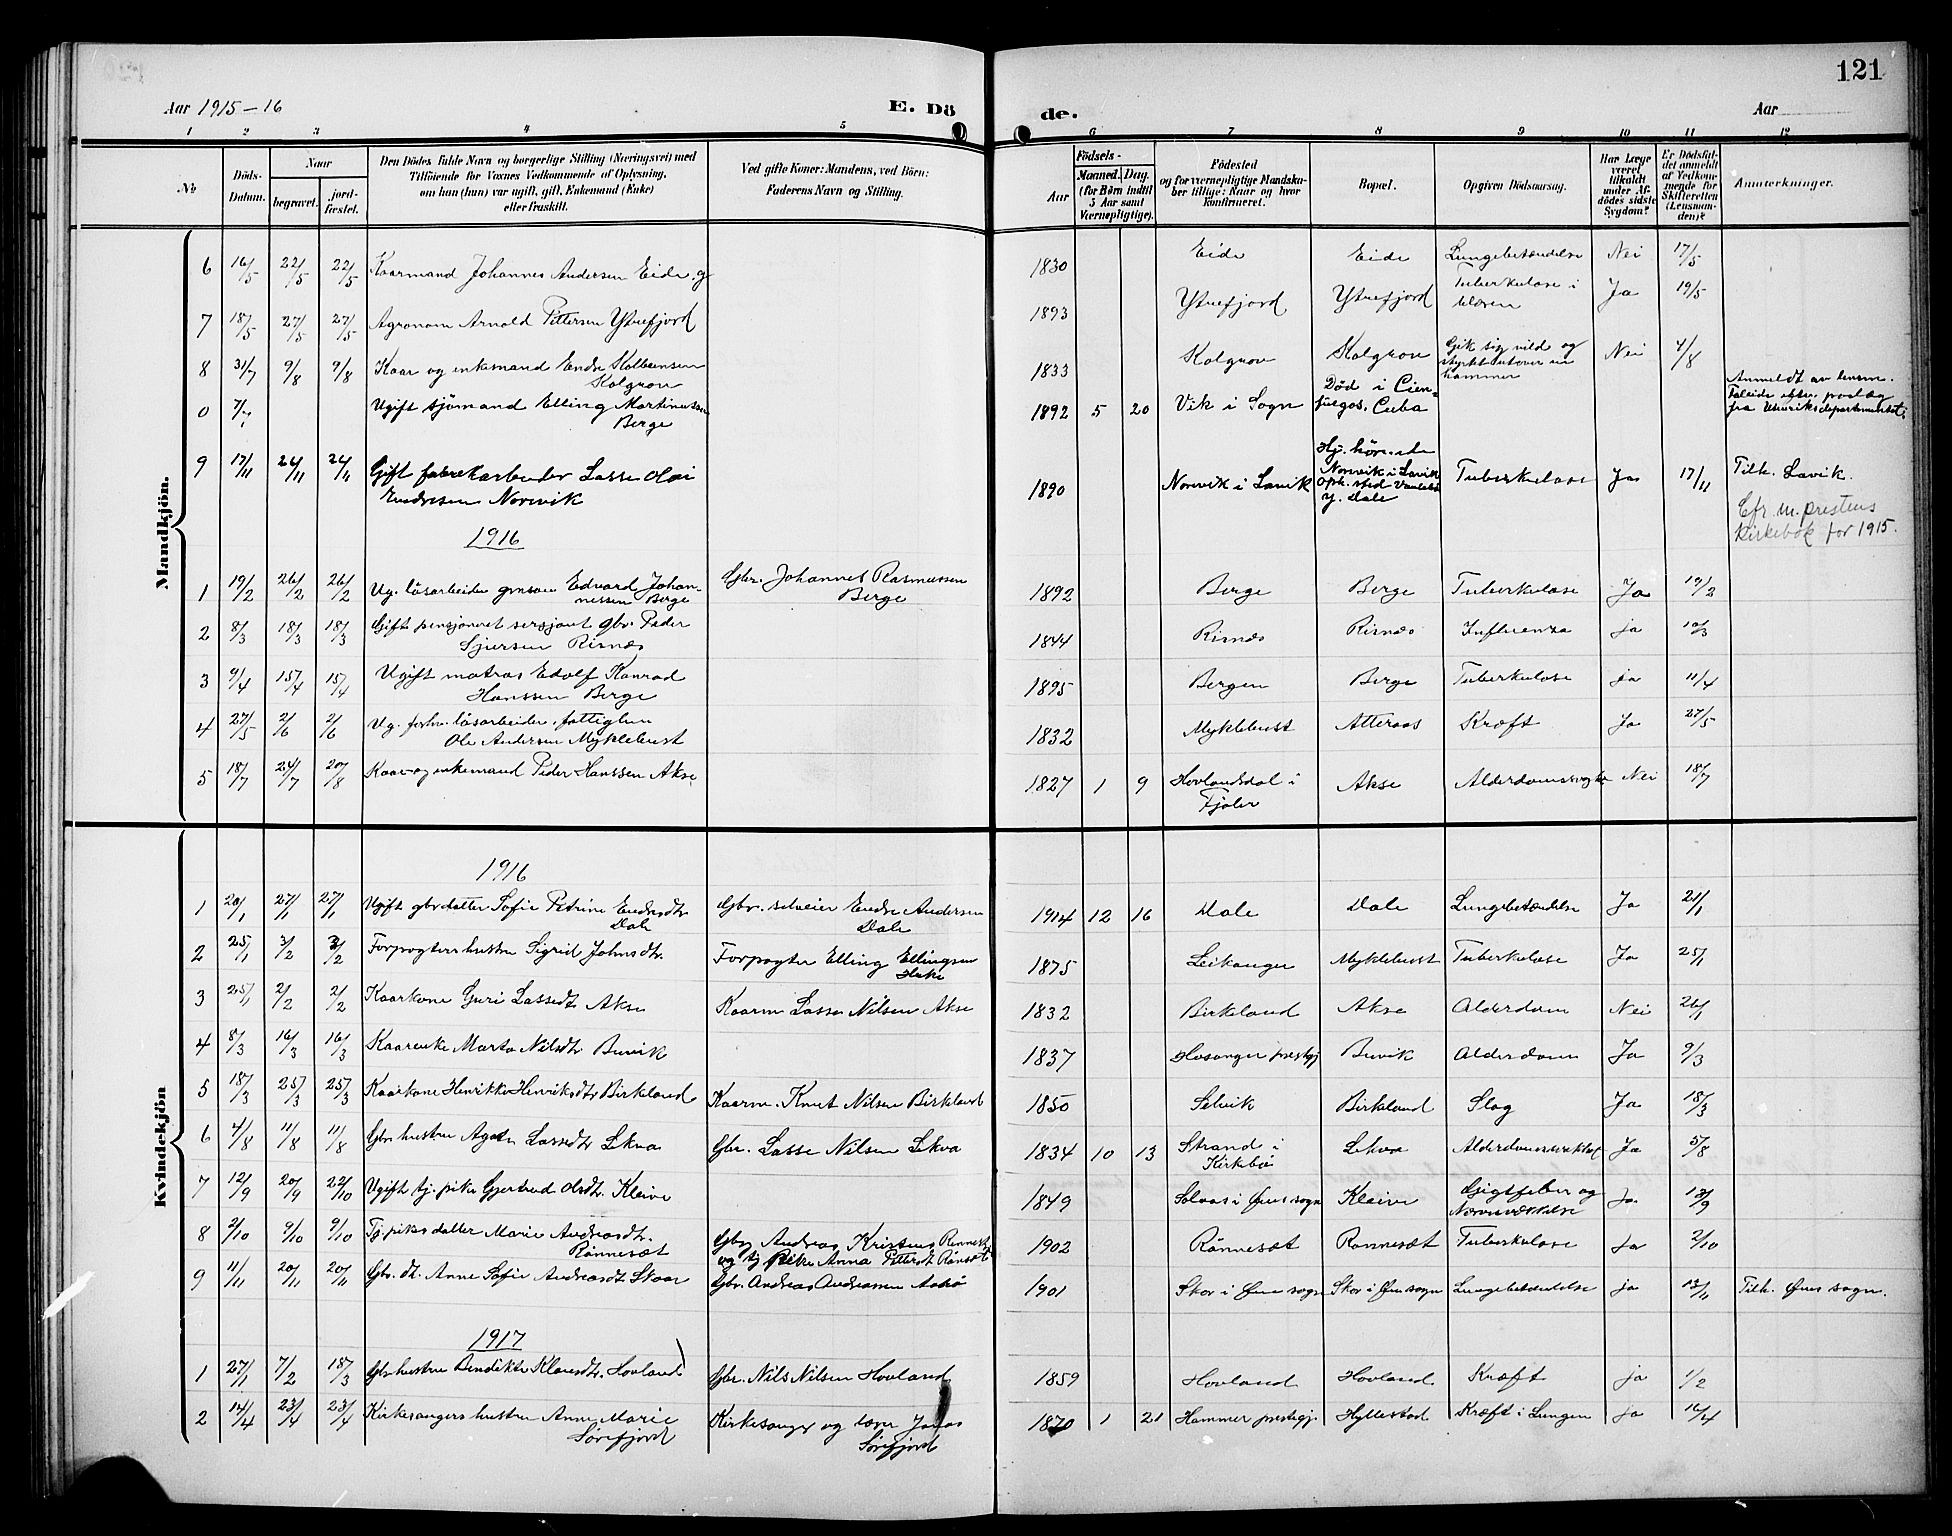 121
Aar 1915-16 E. Dö de. Aar
1 2 3 4 5 6 7 8 9 10 11 12
No
Döds-Datum.
Naar
begravet.
jord-fæstet.
Den Dödes fulde Navn og borgerlige Stilling (Næringsvei) med
Tilföiende for Voxnes Vedkommende af Oplysning,
om han (hun) var ugift, gift, Enkemand (Enke)
eller fraskilt.
Ved gifte Koner: Mandens, ved Börn:
Faderens Navn og Stilling.
Födsels-
Aar
Maaned. Dag.
(for Börn indtil
5 Aar samt
Værnepligtige).
Födested
og for værnepligtige Mandska-
ber tillige: Naar og hvor
Konfirmeret.
Bopæl.
Opgiven Dödsaarsag.
Har Læge
været
tilkaldt
under Af-
dödes sidste
Sygdom?
Er Dödsfal-
det anmeldt
af Vedkom-
mende for
Skifteretten
(Lensman-
den)?
Anmærkninger.
Mandkjön.
6 16/5 22/5 22/5 Kaarmand Johannes Andersen Eide 1830 Eide Eide Lungebetændelse Nei 17/5
7 18/5 27/5 27/5 Agronom Arnold Pettersen Ytrefjord 1893 Ytrefjord Ytrefjord Tuberkulose i Ja 19/5
8 31/7 9/8 9/8 Kaar og enkemand Endre Kolbensen
Kolgrov 1833 Kolgrov Kolgrov Gik sig vild og
hammer Nei 4/8
0 7/7 Ugift sjömand Elling Martinussen
Berge 1892 5 20 Vik i Sogn Död i Cien-
fuegos, Cuba Anmeldt av lensm.
fra Utenriksdepartementet.
9 17/11 24/11 24/11 Gift fabrikarbeider Lasse Olai
Endresen Norevik 1890 Norevik i Lavik
Norevik i Lavik
Dale Tuberkulose Ja 17/11 Tilh. Lavik.
Cfr. m. prestens
Kirkebok for 1915.
1916
1 19/2 26/2 26/2 Ug. lösarbeider Edvard Johan-
nessen Berge Gbr. Johannes Rasmussen
Berge 1892 Berge Berge Tuberkulose Ja 19/2
2 8/3 18/3 18/3 Gift pensjoneret sersjant gbr. Peder
Sjursen Risnæs 1844 Risnæs Risnæs Influenza ja 10/3
3 9/4 15/4 15/4 Ugift matros Edolf Konrad
Hanssen Berge 1895 Bergen Berge Tuberkulose ja 11/4
4 27/5 2/6 2/6 Ug. forhv. lösarbeider, fattiglem
Ole Andersen Myklebust 1832 Myklebust Atteraas Kræft Ja 27/5
5 18/7 24/7 20/8 Kaar- og enkemand Peder Hanssen Akse 1827 1 9 Hovlandsdal i
Fjaler Akse Alderdomssvaghe Nei 18/7
Kvindekjön
1916
1 20/1 27/1 27/1 Ugift gbr datter Sofie Petrine Endresdtr
Dale Gbr. selveier Endre Andersen
Dale 1914 12 16 Dale Dale Lungebetændelse Ja 21/1
2 25/1 3/2 3/2 Forpagters hustru Sigrid Johnsdtr. Forpagter Elling Ellingsen 1875 Leikanger Myklebust Tuberkulose Ja 25/1
3 25/1 2/2 2/2 Kaarkone Guri Lassedtr Akse Kaarm Lasse Nilsen Akse 1832 Birkeland Akse Alderdom Nei 26/1
4 8/3 16/3 16/3 Kaarenke Marta Nilsdtr Buvik 1837 Hosanger prestegj Buvik Alderdom Ja 9/3
5 18/3 25/3 25/3 Kaarkone Henrikke Henriksdtr Birkeland Kaarm. Knut Nilsen Birkeland 1850 Selvik Birkeland Slag Ja 18/3
6 4/8 11/8 11/8 Gbr hustru Agate Lassedtr Lekva Gbr. Lasse Nilsen Lekva 1834 10 13 Strand i
Kirkebö Lekva Ja 5/8
7 12/9 20/9 22/10 Ugift tj. pike Gjertrud Olsdtr. Kleive 1849 sogn Kleive Gigtfeber og Ja 12/9
8 2/10 9/10 9/10 Tj. pikes datter Marie Andreasdtr.
Rönnesæt Gbr Andreas Kristens
og tj pike Anna 1902 Rönnesæt Rönnesæt Tuberkulose Ja 2/10
9 11/11 20/11 20/11 Gbr. dt. Anne Sofie Andreasdtr Skaar Gbr. Andreas Andreassen 1901 Skor i Öens sogn Skor i Öens sogn Lungebetændelse ja 13/11 Tilh. Öens sogn.
1917
1 27/1 7/2 18/3 Gbr hustru Bendikte Klausdtr. Hovland Gbr. Nils Nilsen Hovland 1859 Hovland Hovland Kræft ja 1/2
2 14/4 23/4 23/4 Kirkesangers hustru Anne Marie
Sörefjord Kirkesanger og lærer Jonas
Sörefjord 1870 1 21 Hammer prestegj. Hyllestad Kræft i Lungen ja 16/4